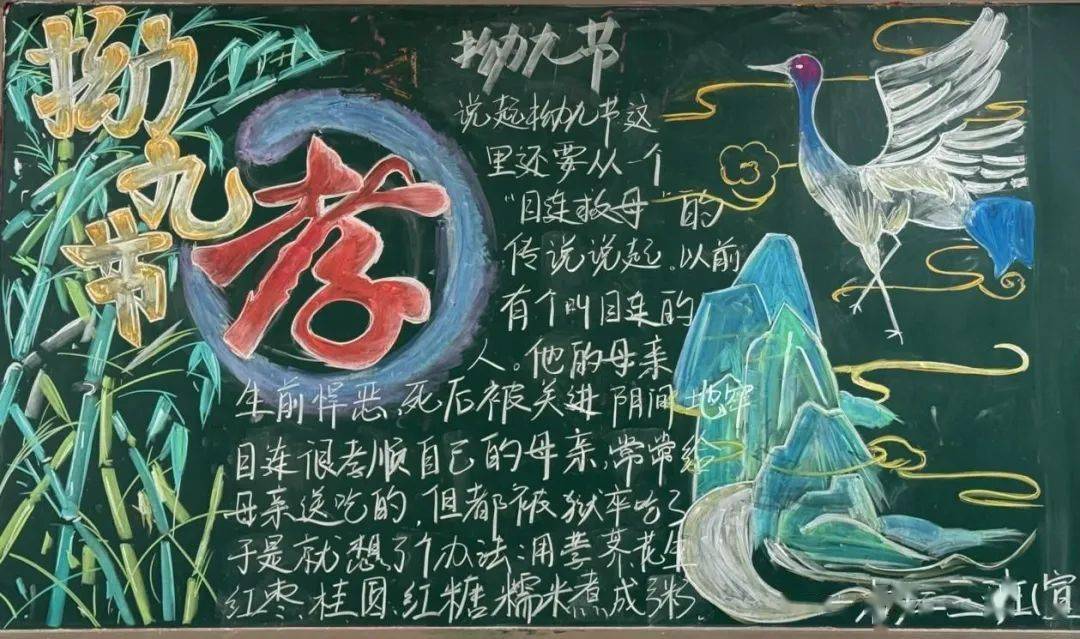 拗九节
孝
拗九节
说起拗九节这
里还要从一个
"目连救母"的
传说说起。以前
有个叫目连的
人。他的母亲
生前悍恶,死后被关进阴间地牢
目连很孝顺自己的母亲,常常给
母亲送吃的,但都被狱卒吃了
于是就想了个办法:用荸荠花生
红枣、桂圆、红糖糯米煮成粥.
班(宣